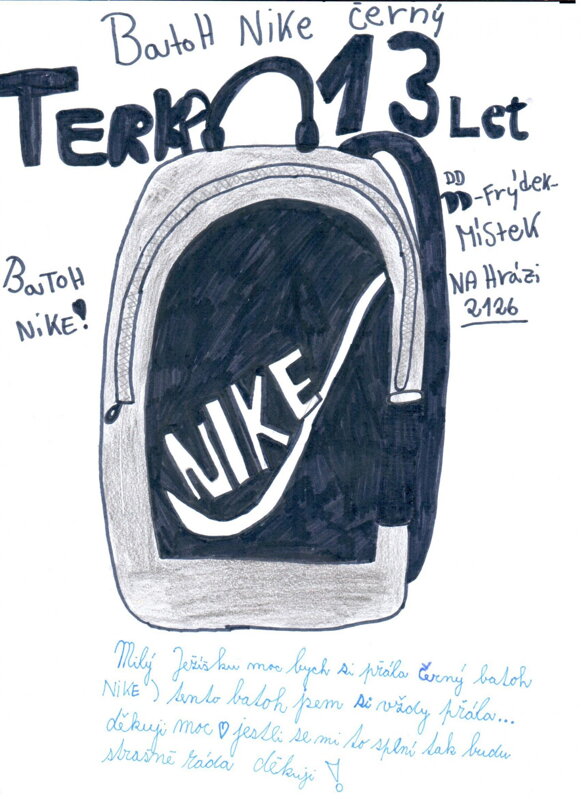 Batoh Nike černý
Terka 13 Let
DD
DD-Frýdek-
Místek
NA Hrázi
2126
Batoh
NiKE!
NIKE
Milý Ježíšku moc bych si přála Černý batoh
NiKE) tento batoh jsem si vždy přála...
děkuji moc jestli se mi to splní tak budu
strašně ráda děkuji!